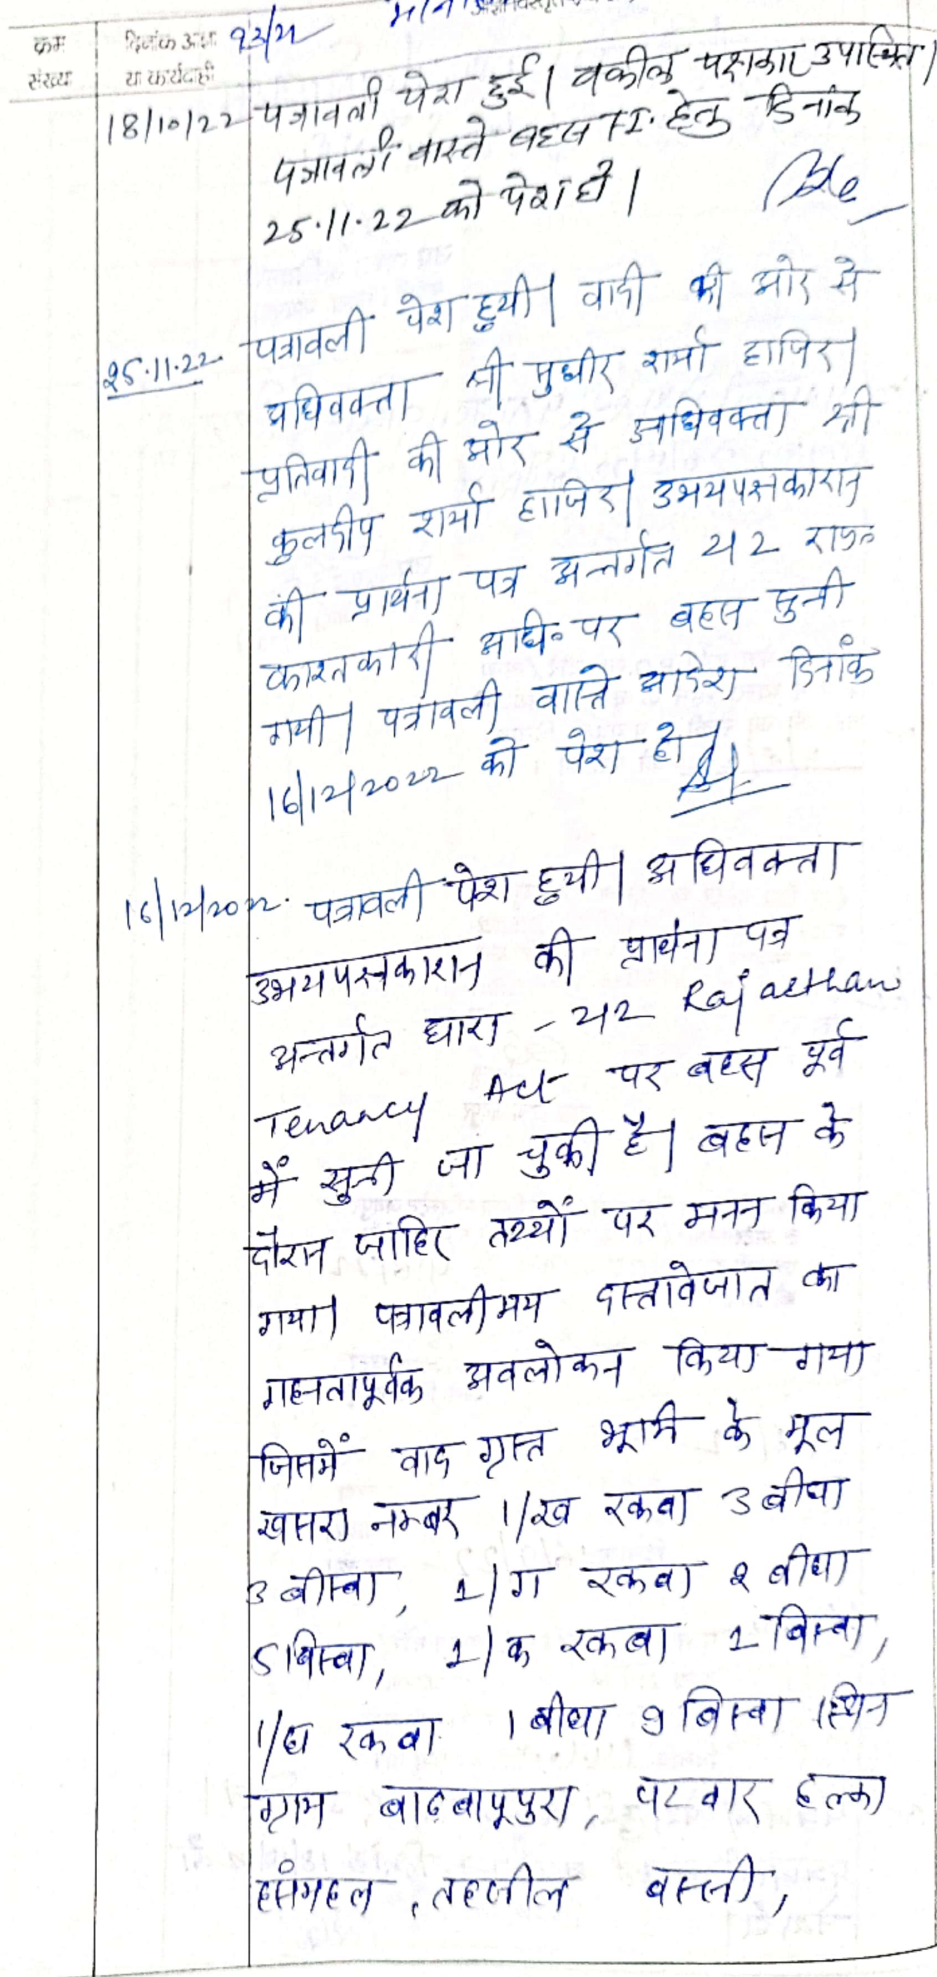 क्रम दिनांक आज्ञा 93/21
संख्या या कार्यवाही
18/10/22 पत्रावली पेश हुई। वकील पक्षकार उपस्थित।
पत्रावली वास्ते बहस T.I. हेतु दिनांक
25.11.22 को पेश हो।
25.11.22 पत्रावली पेश हुयी। वादी की ओर से
अधिवक्ता श्री सुधीर शर्मा हाजिर।
प्रतिवादी की ओर से अधिवक्ता श्री
कुलदीप शर्मा हाजिर। उभयपक्षकारान
की प्रार्थना पत्र अन्तर्गत 212 राज०
काश्तकारी अधि० पर बहस सुनी
गयी। पत्रावली वास्ते आदेश दिनांक
16/12/2022 को पेश हो।
16/12/2022. पत्रावली पेश हुयी। अधिवक्ता
उभयपक्षकारान की प्रार्थना पत्र
अन्तर्गत धारा - 212 Rajasthan
Tenancy Act पर बहस पूर्व
में सुनी जा चुकी है। बहस के
दौरान जाहिर तथ्यों पर मनन किया
गया। पत्रावली मय दस्तावेजात का
गहनतापूर्वक अवलोकन किया गया
जिसमें वाद ग्रस्त भूमि के मूल
खसरा नम्बर 1/ख रकबा 3 बीघा
3 बीस्वा, 1/ग रकवा 2 बीघा
5 बिस्वा, 1/क रकबा 1 बिस्वा,
1/घ रकवा 1 बीघा 9 बिस्वा स्थित
ग्राम बाढबापूपुरा, पटवार हल्का
हसंमहल, तहसील बस्सी,